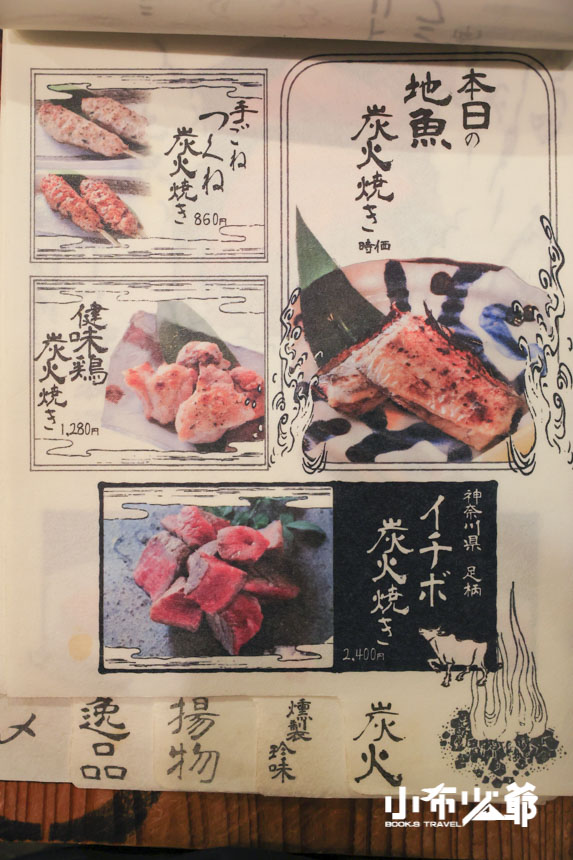 本日の
地魚
炭火焼き
時価
手ごね
つくね
炭火焼き
860円
健味鶏
炭火焼き
1,280円
神奈川県 足柄
イチボ
炭火焼き
2,400円
炭火
燻製
珍味
揚物
逸品
〆
小布少爺
BOOK.S TRAVEL